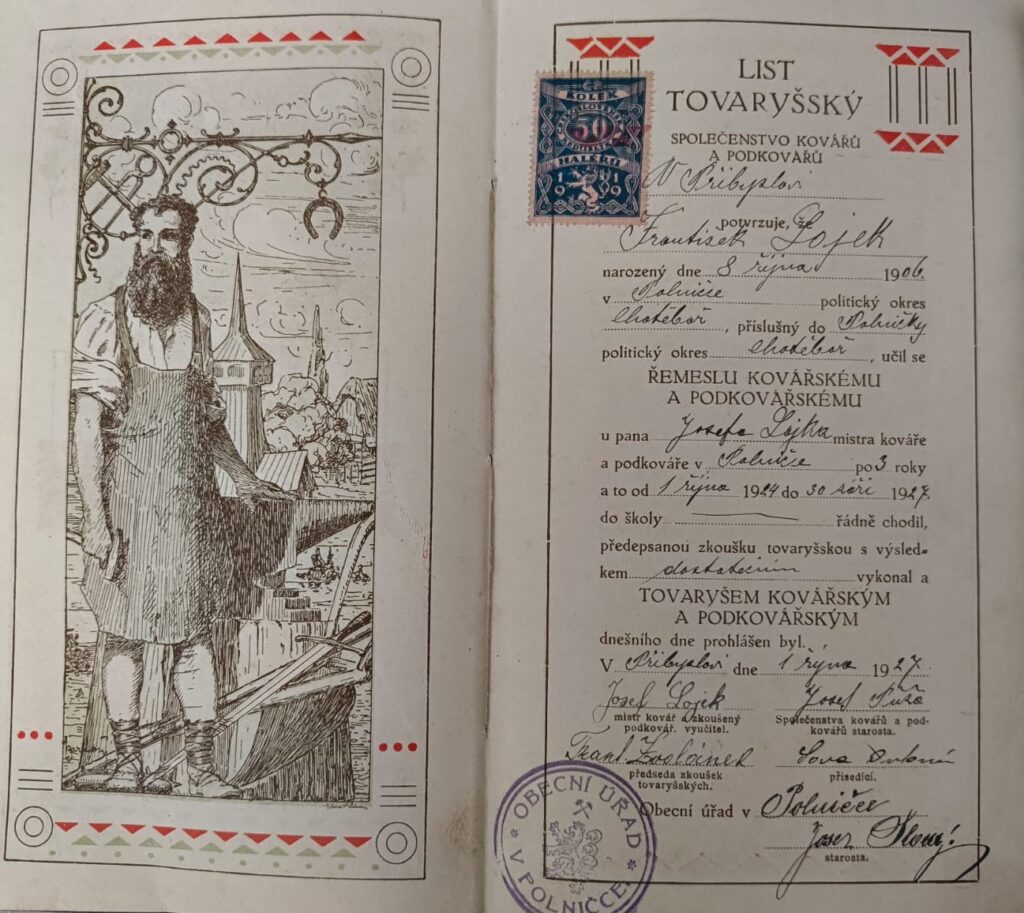 KOLEK
50
HALÉŘŮ
1919
LIST
TOVARYŠSKÝ
SPOLEČENSTVO KOVÁŘŮ
A PODKOVÁŘŮ
V Přibyslavi
potvrzuje, že
František Lojek
narozený dne 8 října 1906.
v Polničce politický okres
Chotěboř, příslušný do Polničky
politický okres Chotěboř, učil se
ŘEMESLU KOVÁŘSKÉMU
A PODKOVÁŘSKÉMU
u pana Josefa Lojka mistra kováře
a podkováře v Polničce po 3 roky
a to od 1 října 1924 do 30 září 1927.
do školy řádně chodil,
předepsanou zkoušku tovaryšskou s výsled-
kem dostatečným vykonal a
TOVARYŠEM KOVÁŘSKÝM
A PODKOVÁŘSKÝM
dnešního dne prohlášen byl.
V Přibyslavi dne 1 října 1927.
Josef Lojek Josef
mistr kovář a zkoušený
podkovář. vyučitel.
Společenstva kovářů a pod-
kovářů starosta.
Frant. Sova
předseda zkoušek
tovaryšských.
přísedící.
Obecní úřad v Polničce
Josef
starosta.
OBECNÍ ÚŘAD
V POLNIČCE